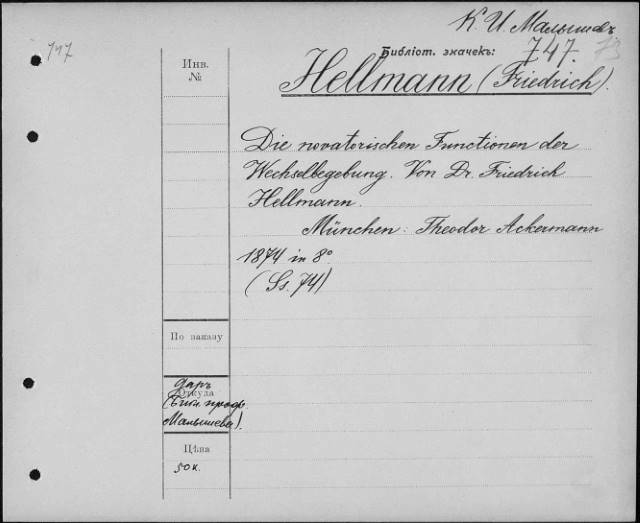 К. И. Малышевъ
747
Библіот. значекъ: 747. 73
Инв.
№
Hellmann (Friedrich).
Die novatorischen Functionen der
Wechselbegebung. Von Dr. Friedrich
Hellmann.
München: Theodor Ackermann
1874 in 8º
(Ss. 74)
По заказу
Даръ
Откуда
(Библ. проф.
Малышева).
Цѣна
50 к.